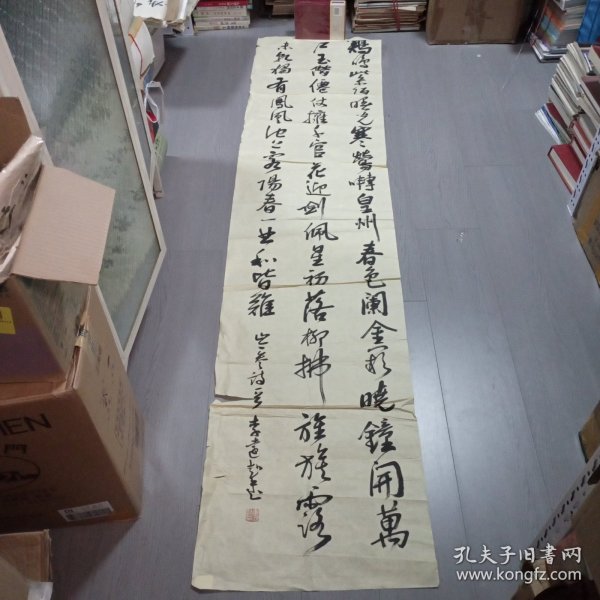 鸡鸣紫陌曙光寒莺啭皇州春色阑金阙晓钟开万
户玉阶仙仗拥千官花迎剑佩星初落柳拂旌旗露
未乾独有凤凰池上客阳春一曲和皆难 岑参诗一首 李
孔夫子旧书网
www.kongfz.com